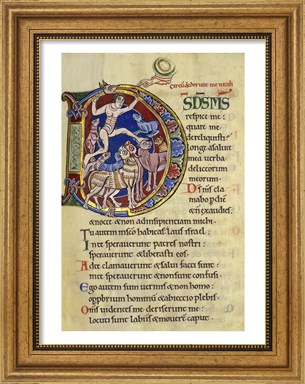 Circũdederunt me uituli
DS DS MS
respice me:
quare me
dereliquisti:
longe a salute
mea uerba
delictorum
meorum.
Ds ms cla
mabo p
& non exaudies.
& nocte & non ad insipientiam michi.
Tu autem in sco habitas laus israel.
In te sperauerunt patres nostri:
sperauerunt & liberasti eos.
Ad te clamauerunt & salui facti sunt:
in te sperauerunt & non sunt confusi.
Ego autem sum uermis & non homo:
opprobrium hominum & abiectio plebis.
Omnes uidentes me deriserunt me:
locuti sunt labiis & mouerunt caput.